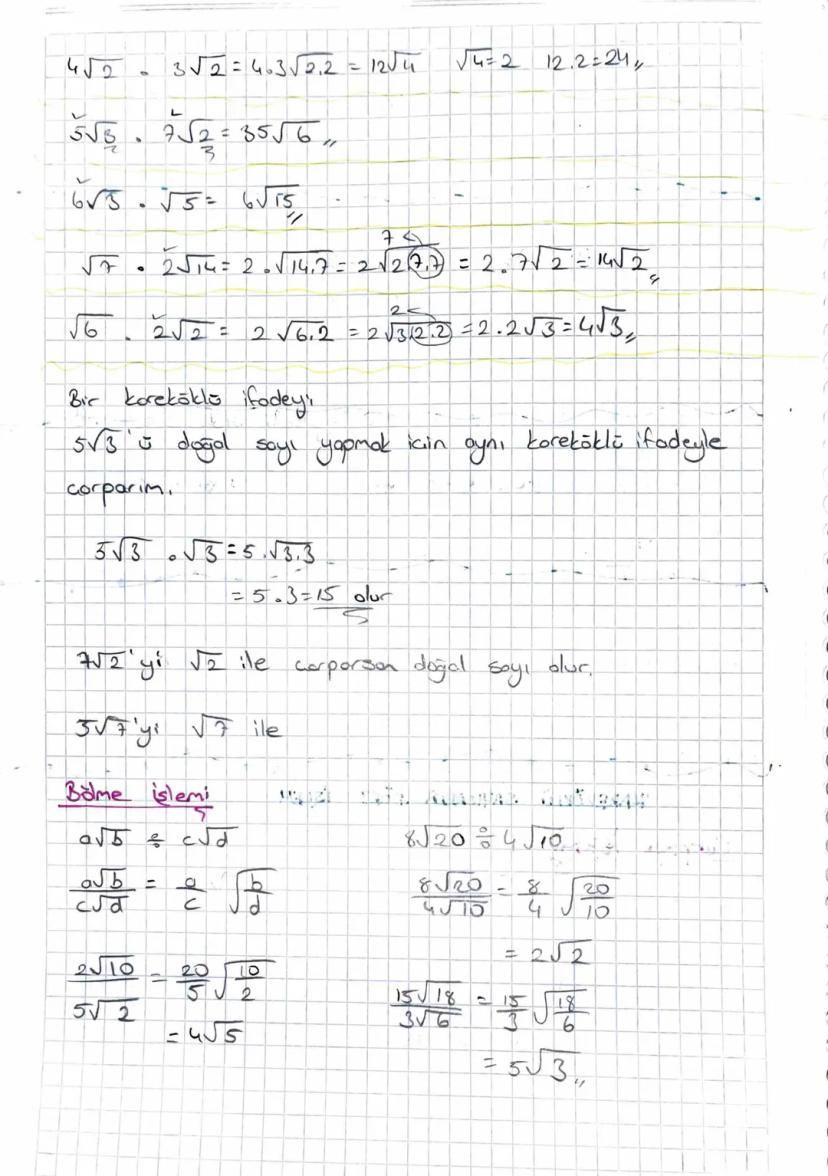 4√2 . 3√2 = 4.3√2.2 = 12√4 √4=2 12.2=24,,
5√3 . 7√2 = 35√6,,
2 3
6√3 . √5 = 6√15
7
√7 . 2√14 = 2.√14.7 = 2√2.7.7 = 2.7√2 = 14√2,,
2
√6 . 2√2 = 2√6.2 = 2√3.2.2 = 2.2√3 = 4√3,,
Bir kareköklü ifadeyi
5√3'ü doğal sayı yapmak için aynı kareköklü ifadeyle
çarparım.
5√3 . √3 = 5.√3.3
= 5.3 = 15 olur
7√2'yi √2 ile çarparsan doğal sayı olur.
3√7'yi √7 ile
Bölme işlemi
a√b ÷ c√d
a√b/c√d = a/c √b/d
2√10/5√2 = 20/5 √10/2
= 4√5
8√20 ÷ 4√10
8√20/4√10 = 8/4 √20/10
= 2√2
15√18/3√6 = 15/3 √18/6
= 5√3,,